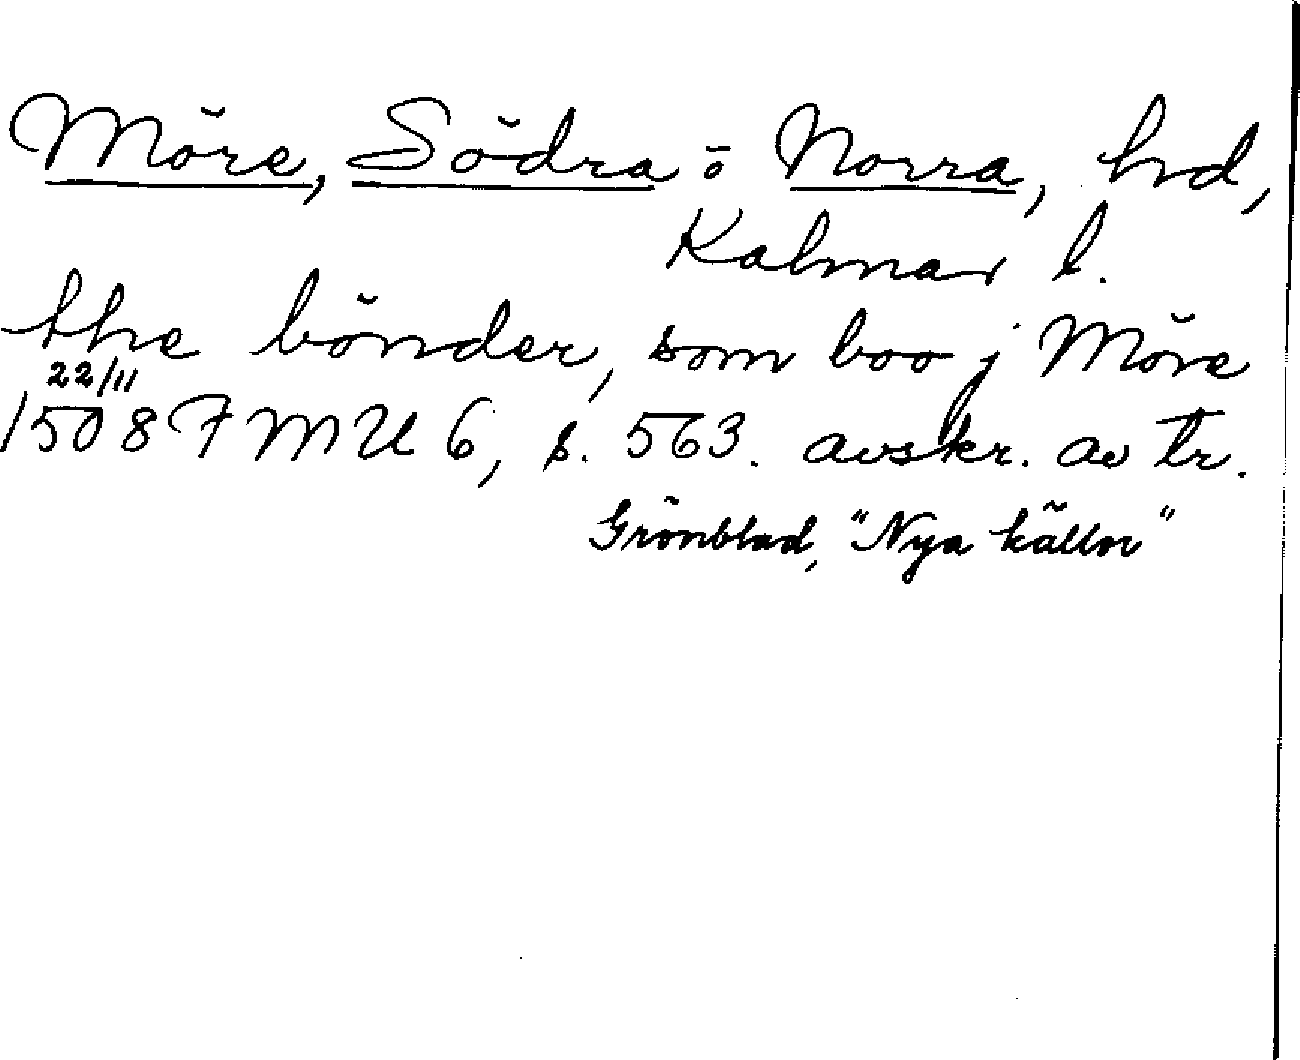 Möre, Södra o Norra, hrd,
Kalmar l.
the bönder, som boo j Möre
22/11
1508 FMU 6, s. 563. avskr. av tr.
Grönblad, "Nya källor"